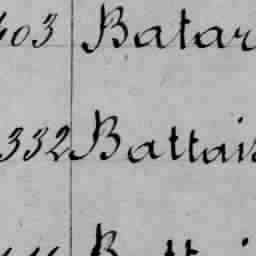 403 Batar
332 Battais